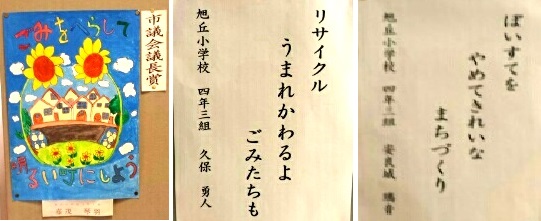 ごみをへらして
明るい町にしよう
市議会議長賞
リサイクル
うまれかわるよ
ごみたちも
旭丘小学校 四年三組 久保 勇人
ぽいすてを
やめてきれいな
まちづくり
旭丘小学校 四年二組